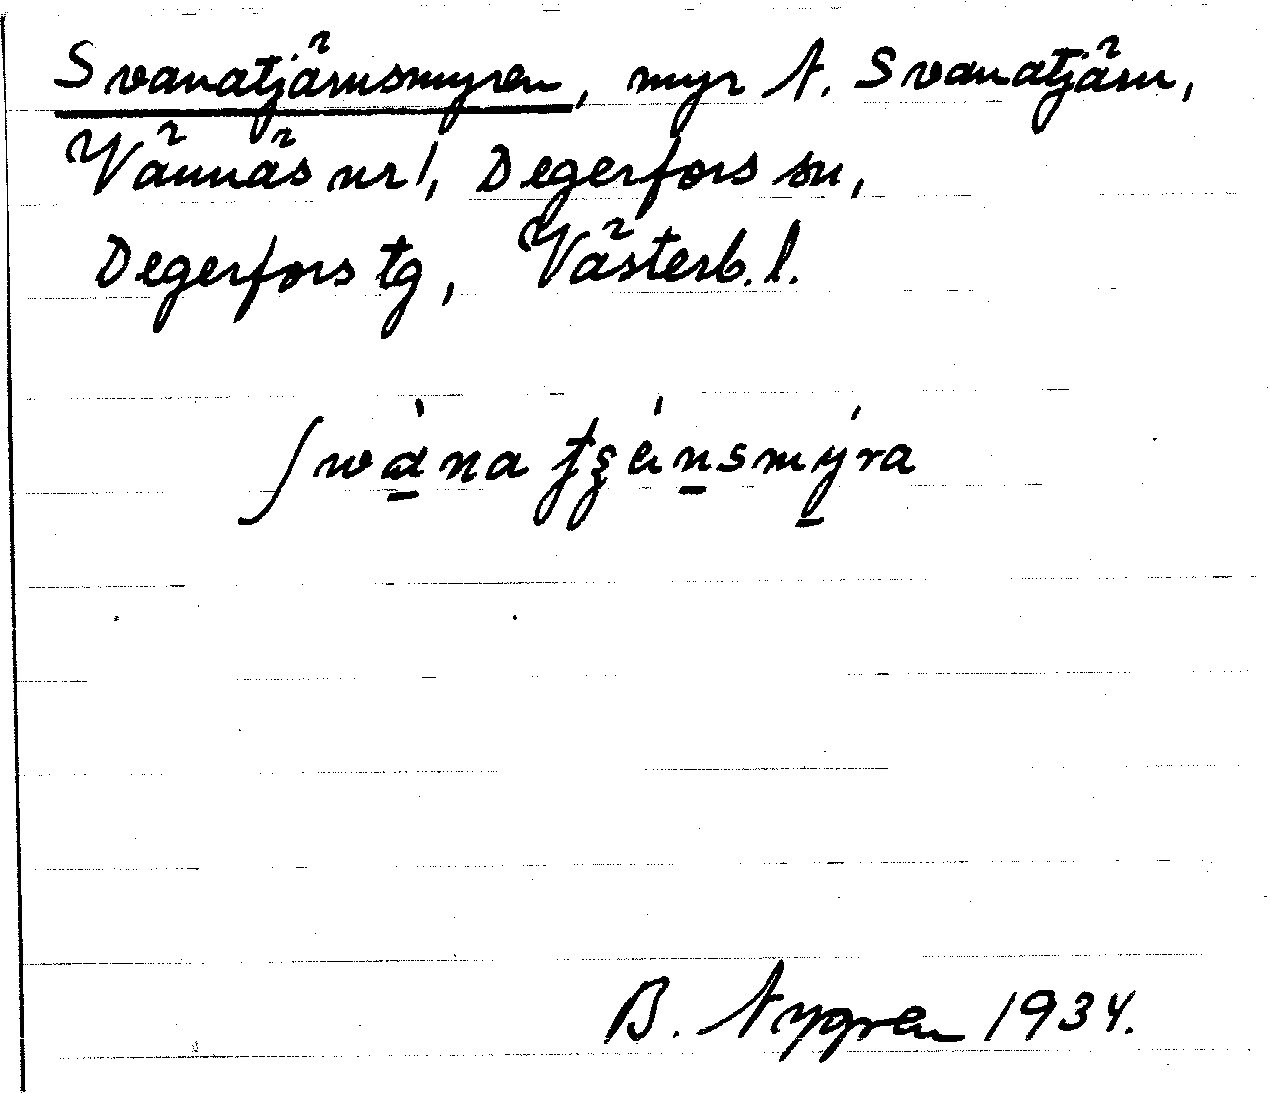 Svanatjärnsmyren, myr N. Svanatjärn,
Vännäs nr 1, Degerfors sn,
Degerfors tg, Västerb. l.
B. Nygren 1934.